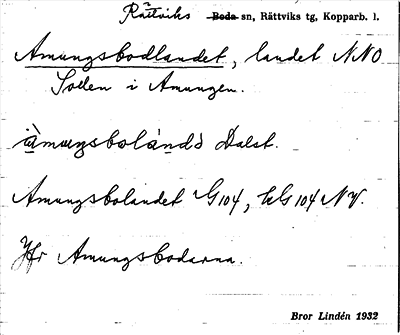 Rättviks Boda sn, Rättviks tg, Kopparb. l.
Amungsbodlandet, landet NNO
Sollen i Amungen.
àmuŋsbolándǝ Dalst.
Amungsbolandet G104, HG104NV.
Jfr Amungsbodarna.
Bror Lindén 1932